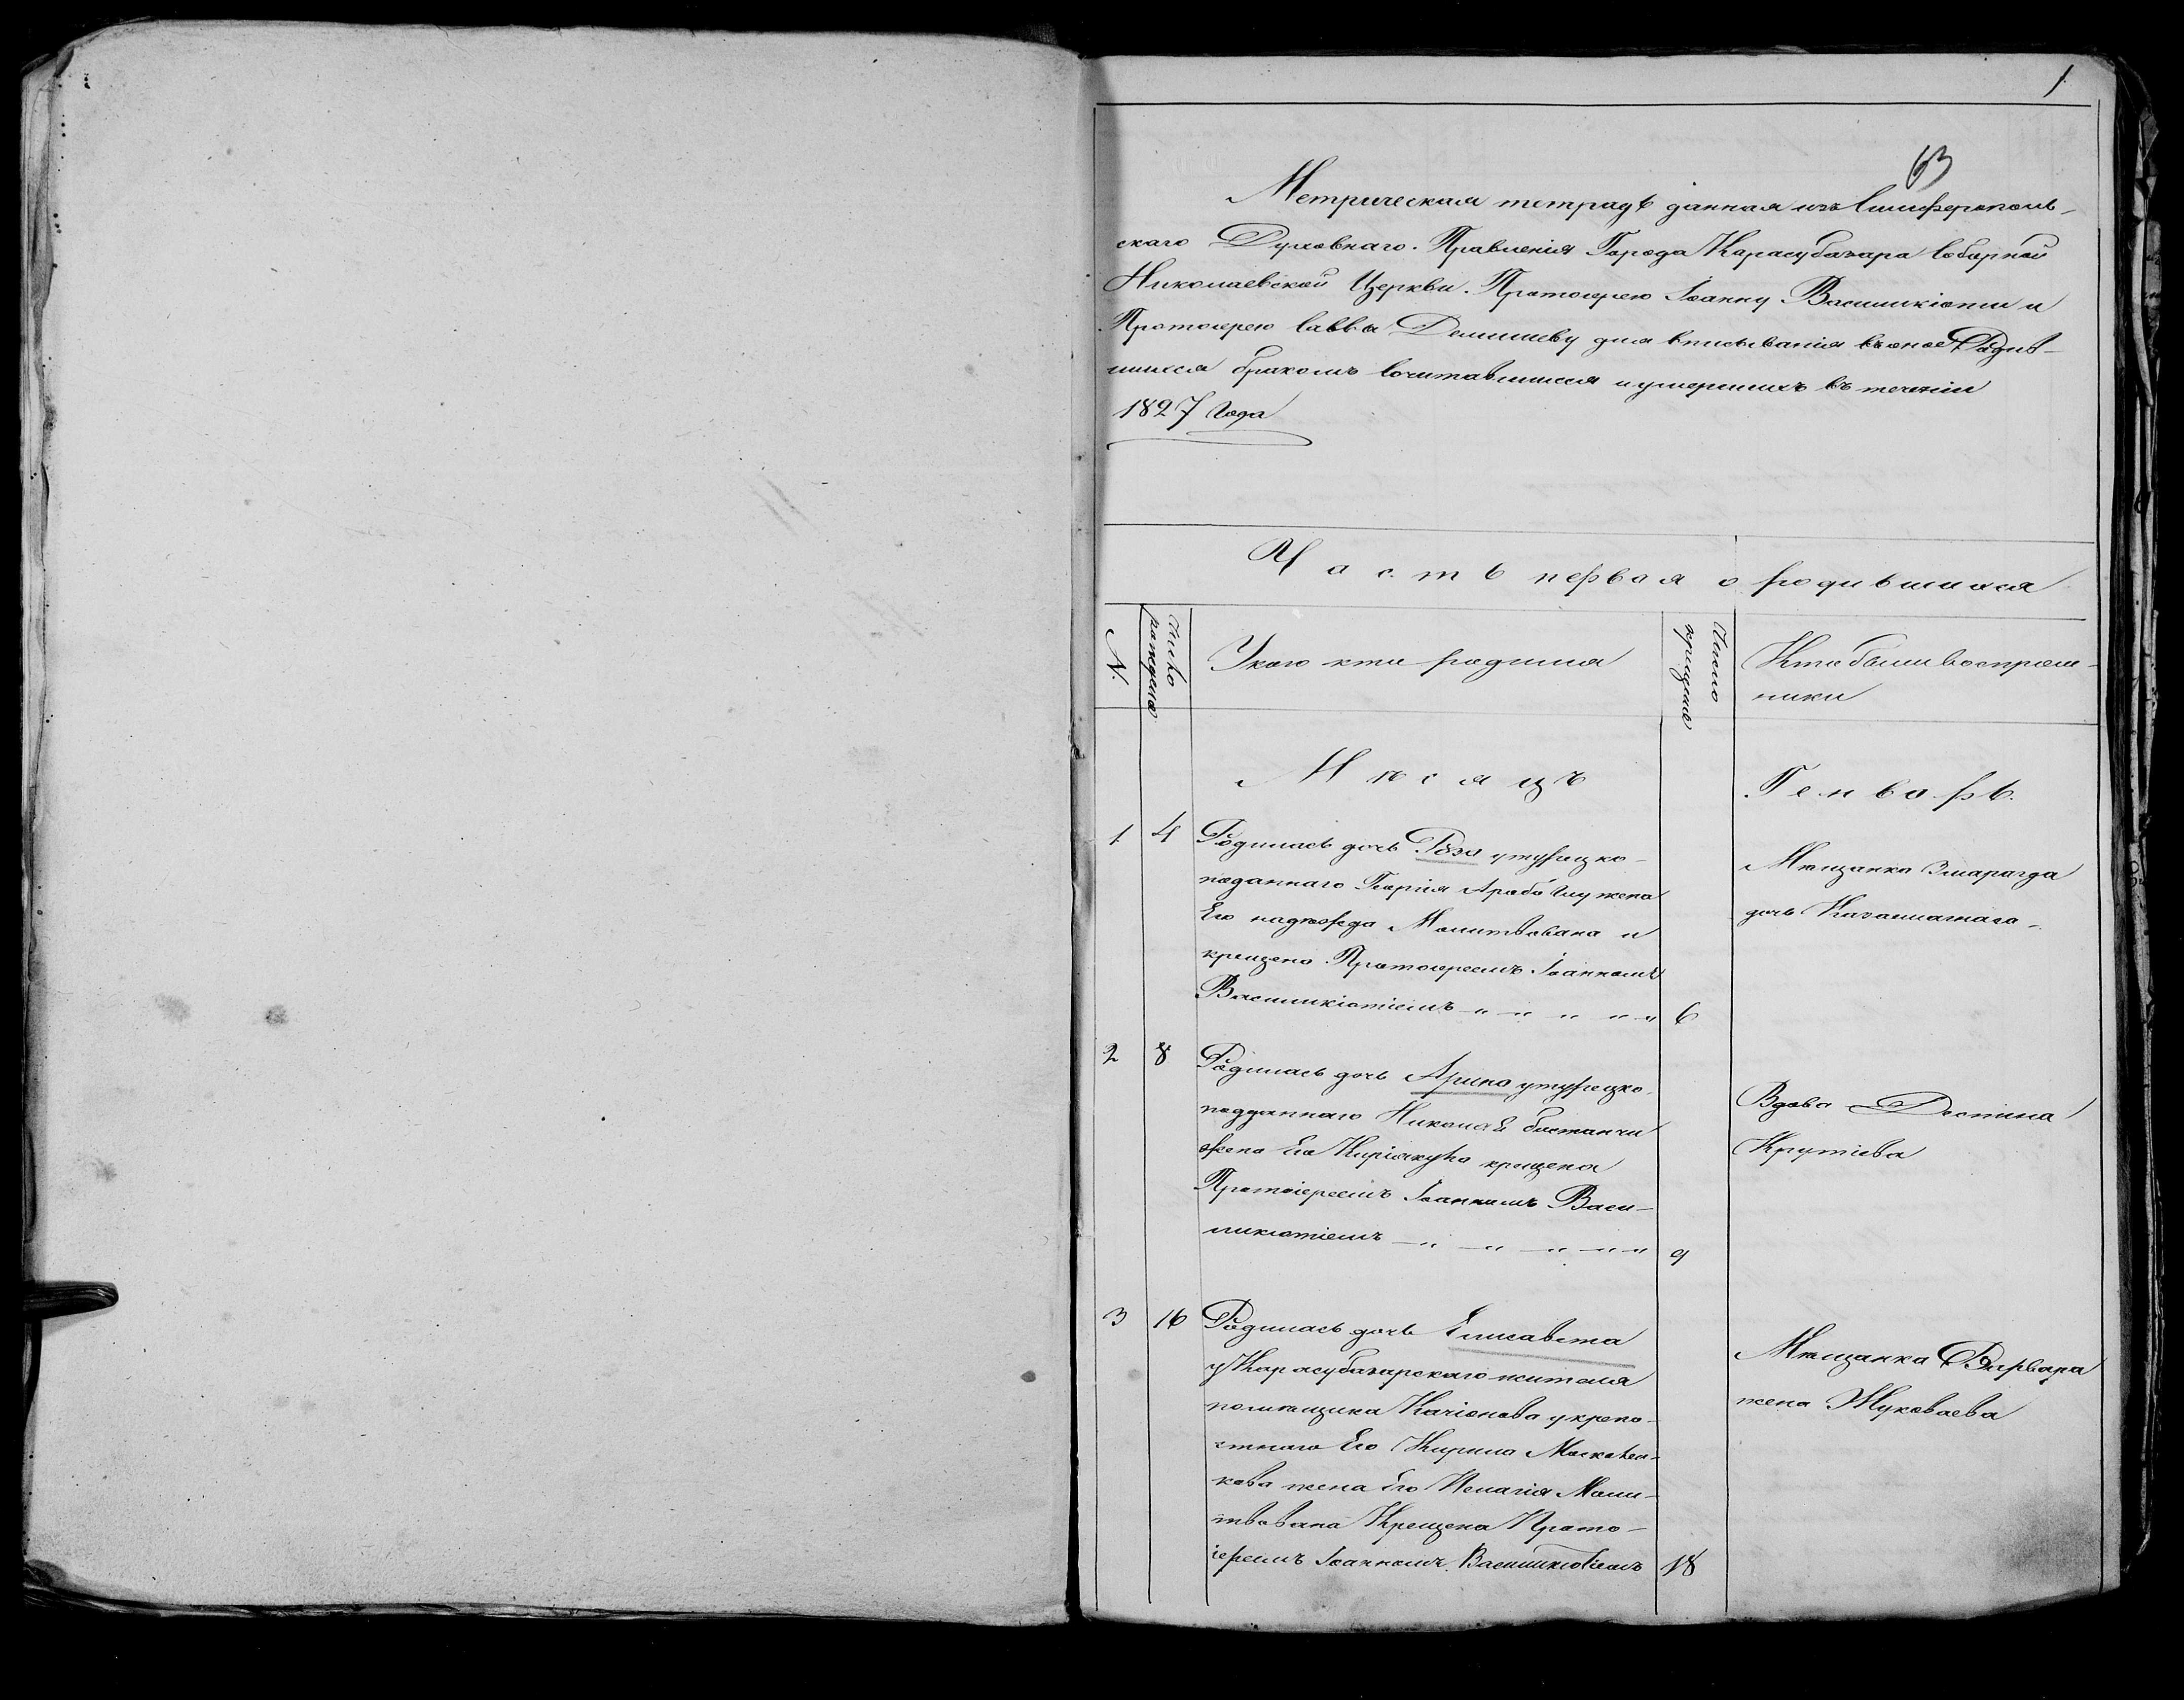 1
63
Метрическая тетрадь данная изъ Симферополь-
скаго Духовнаго. Правленія Города Карасубазара Соборной
Николаевской Церкви. Протоіерею Іоанну Василикіоти и
Протоіерею Савва Демишеву для вписыванія въ оное Родив-
шихся бракомъ Сочитавшихся и умершихъ въ теченіи
1827 Года
Часть первая о родившихся
N.
Число рожденія
У кого кто родился
Число крещенія
Кто были воспріем-
ники
Мѣсяцъ
Генварь.
1 4 Родилась дочь Роза у турецко-
поданнаго Георгія Арабо́глу жена
Его надежда Молитвована и
крещена Протоіереемъ Іоанномъ
Василикіотіемъ - " - " - " - " - " 6
Мѣщанка Смарагда
дочь
2 8 Родилась дочь Арина у турецко-
подданнаго Николая бостанчи
жена Его крещена
Протоіереемъ Іоанномъ Васи-
ликіотіемъ - " - " - " - " - " 9
Вдова Деспина
Крутіева
3 16 Родилась дочь Елисавета
у Карасубазарскаго жителя
помѣщика Качіонова у крепо-
стнаго Его Кирила Московен-
кова жена Его Пелагія Моли-
твована Крещена Прото-
іереемъ Іоанномъ Василикіотіемъ 18
Мѣщанка Варвара
жена Жуковаева